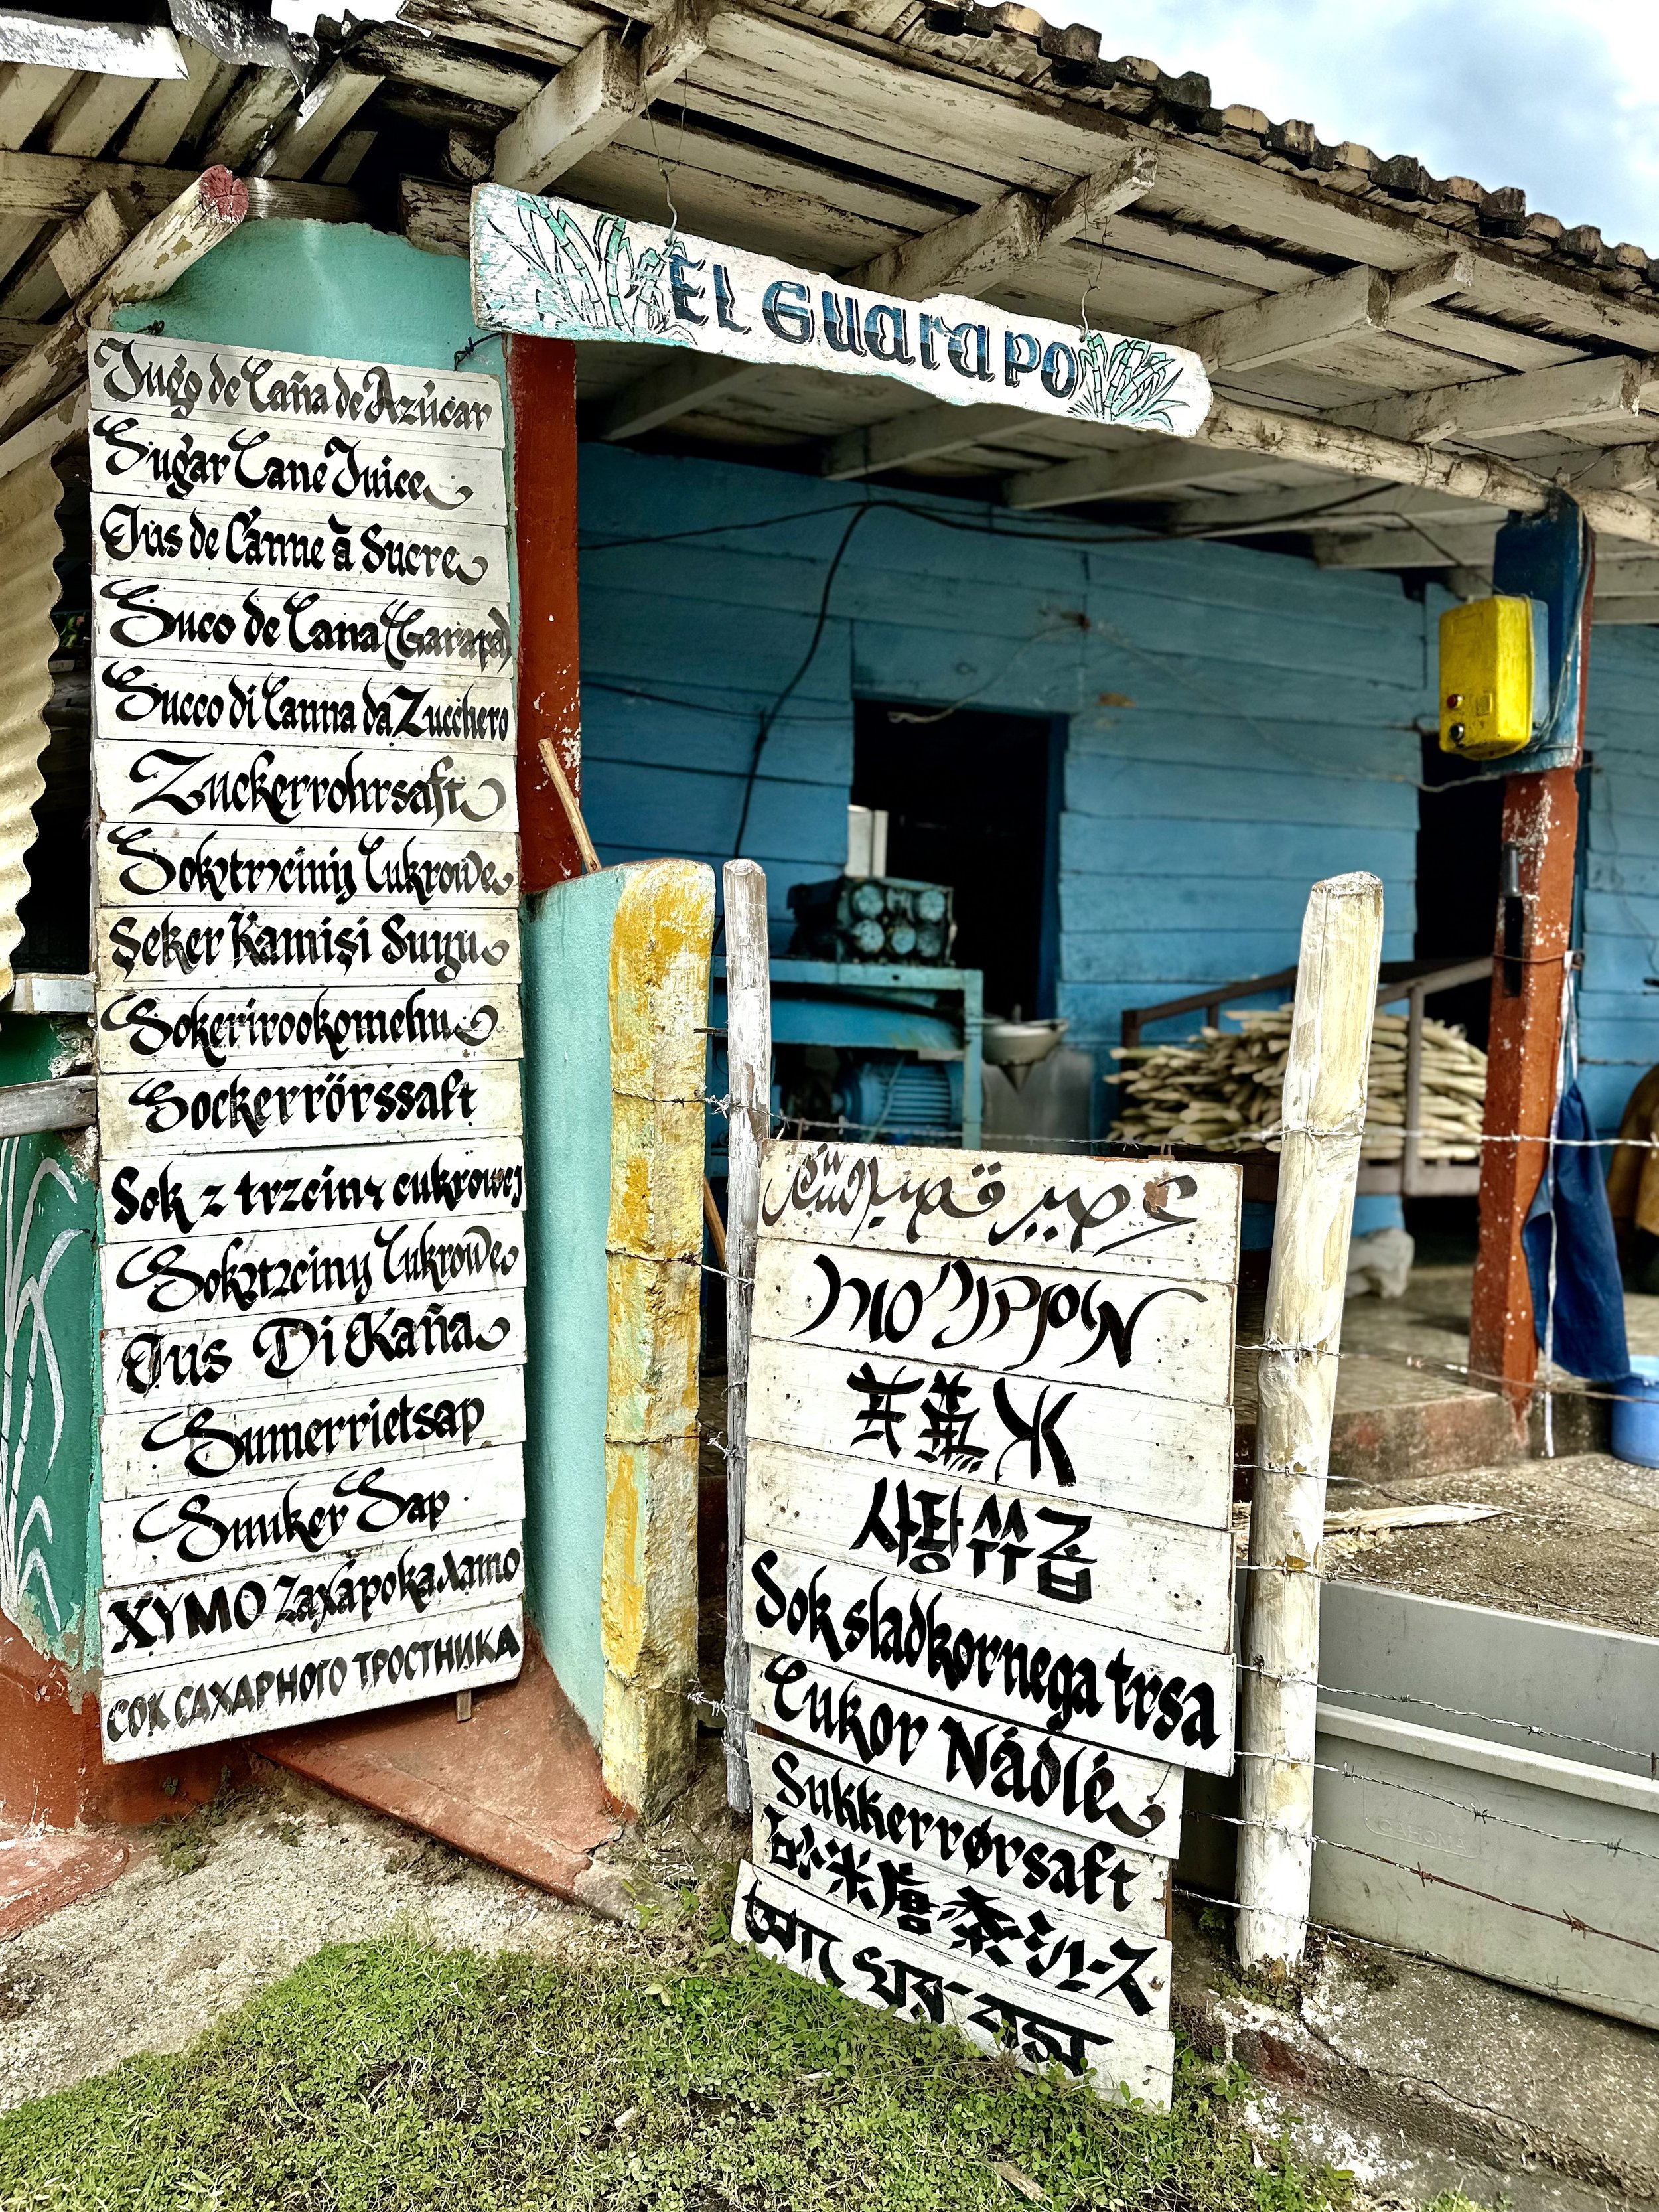 EL GUARAPO
Jugo de Caña de Azúcar
Sugar Cane Juice
Jus de Canne à Sucre
Suco de Cana (Garapa)
Succo di Canna da Zucchero
Zuckerrohrsaft
Soktrzciny Cukrowe
Şeker Kamişi Suyu
Sokeriruokomehu
Sockerrörssaft
Sok z trzciny cukrowej
Soktrzciny Cukrowe
Jus Di Kaña
Sumerrietsap
Suuker Sap
ΧΥΜΟ Ζαχάροκαλαμο
СОК САХАРНОГО ТРОСТНИКА
عصير قصب السكر
מיץ קני סוכר
甘蔗水
사탕 즙
Sok sladkornega trsa
Cukor Nádlé
Sukkerrørsaft